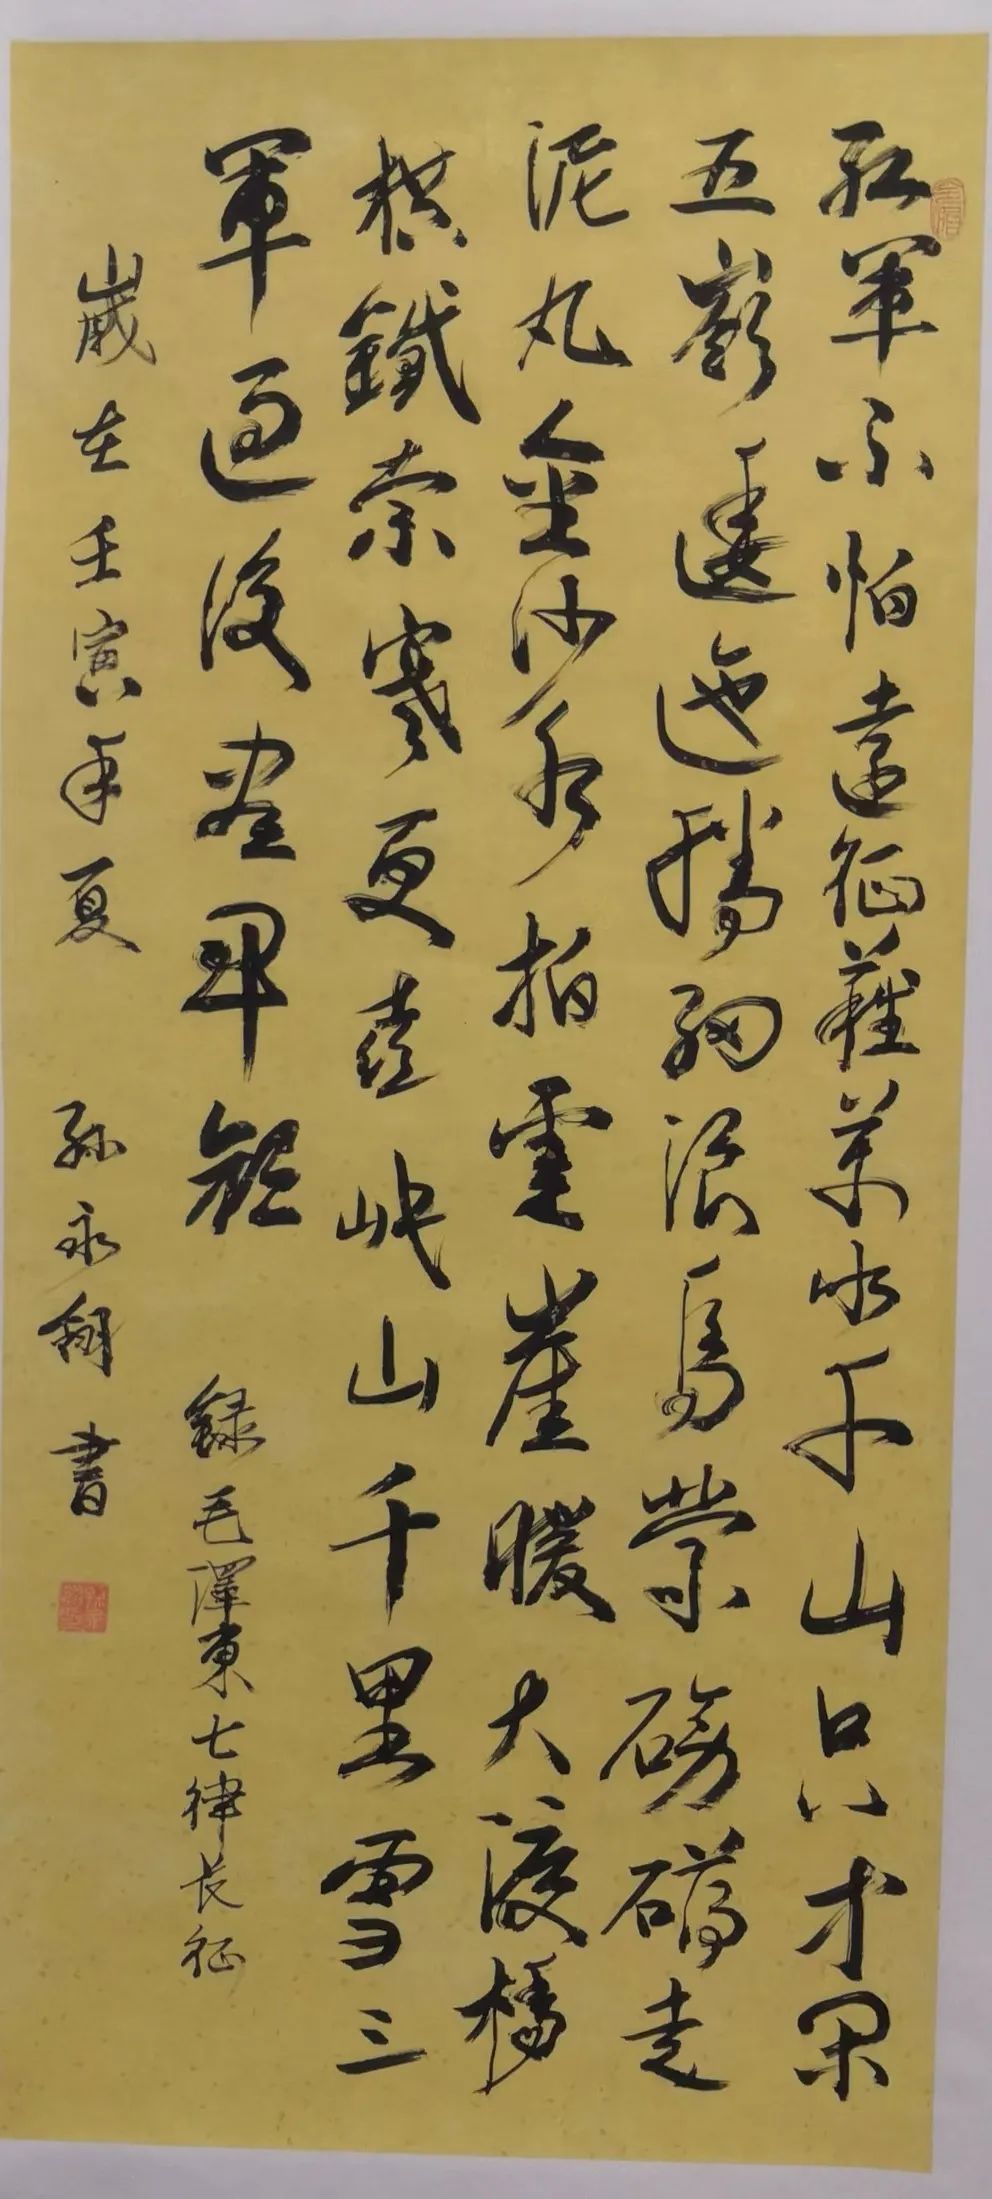 紅軍不怕遠征難萬水千山只等閑
五嶺逶迤騰細浪烏蒙磅礴走
泥丸金沙水拍雲崖暖大渡橋
橫鐵索寒更喜岷山千里雪三
軍過後盡開顏 錄毛澤東七律長征
歲在壬寅年夏 孫永 書